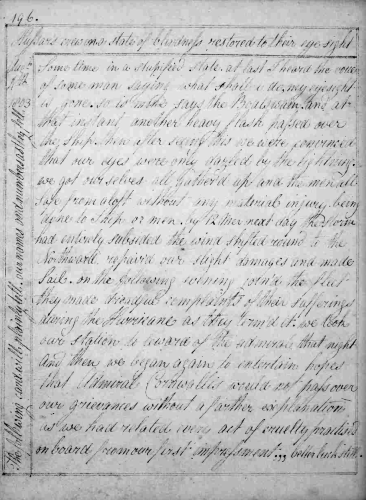 196.
My Bars crew in a state of blindness restored to their eye sight
Augst
9th
1803
some time in a stupified state. at last I heard the voice
of some man saying what shall i do, my eyesight
is gone. so is mine says the Boatswain. and at
that instant another heavy flash passed over
the ship. when after seeing this we were convinced
that our eyes were only dazzled by the lightning.
we got our selves all gatherd up and the men all
safe from aloft without any material injury being
done to ship or men. by 12 the next day the storm
had entirely subsided the wind shifted round to the
Northward repaird our slight damages and made
Sail. on the following evening join'd the fleet
they made dreadful complaints of their sufferings
during the Hurricane as they term'd it. we took
our station to leward of the admirals that night
And then we began again to entertain hopes
that Admiral Cornwallis would not pass over
our grievances without a farther explanation
as we had related every act of cruelty practised
on board from our first impressment.,, better luck still.
The following cards will plainly tell. our names and numbers as they fell.